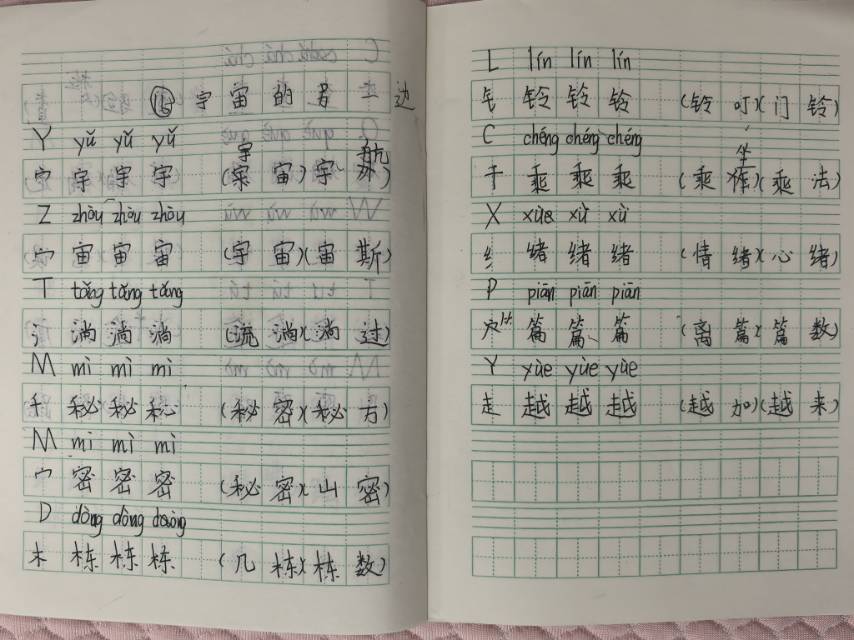 ⑯ 宇宙的另 边
Y yǔ yǔ yǔ
宇 航
宀 宇 宇 宇 ( 宙)(宇 )
Z zhòu zhòu zhòu
宀 宙 宙 宙 (宇宙)(宙斯)
T tǎng tǎng tǎng
氵 淌 淌 淌 (流淌)(淌过)
M mì mì mì
禾 秘 秘 秘 (秘密)(秘方)
M mi mì mì
宀 密 密 密 (秘密)(山密)
D dòng dòng
木 栋 栋 栋 (几栋)(栋数)
L lín lín lín
钅 铃 铃 铃 (铃叮)(门铃)
C chéng chéng chéng
坐
乘 乘 乘 (乘 )(乘法)
X xùe xù xù
纟 绪 绪 绪 (情绪)(心绪)
P piān piān piān
篇 篇 篇 (离篇)(篇数)
Y yùe yùe yùe
走 越 越 越 (越加)(越来)